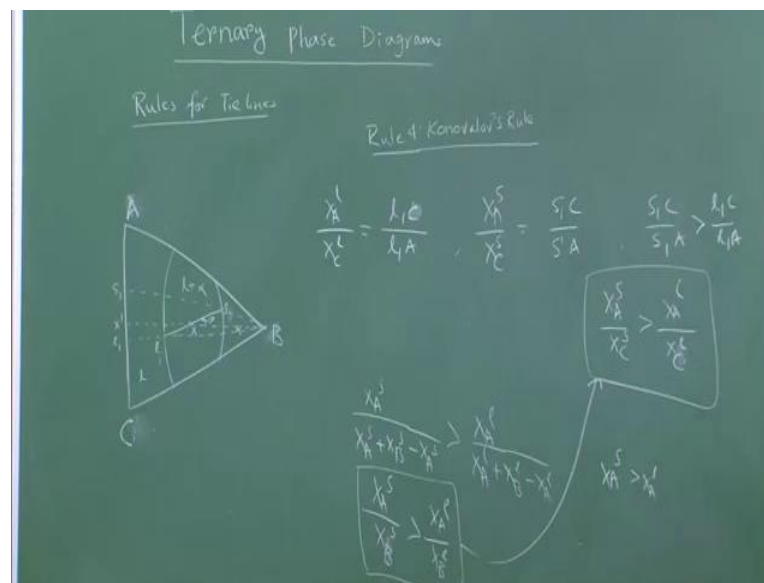 Ternary Phase Diagrams
Rules for Tie lines
Rule 4: Konovalov's Rule
X_A^l / X_C^l = l_1C / l_1A , X_A^S / X_C^S = S_1C / S'A , S_1C / S_1A > l_1C / l_1A
A
X_A^S / X_C^S > X_A^l / X_C^l
S_1
l+α
x'
l_1
B
l
C
X_A^S / (X_A^S + X_B^S - X_A^S) > X_A^l / (X_A^l + X_B^l - X_A^l)
X_A^S > X_A^l
X_A^S / X_B^S > X_A^l / X_B^l